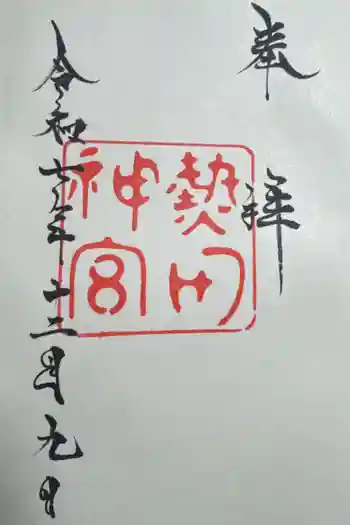 奉拝
熱田
神宮
令和七年十二月九日